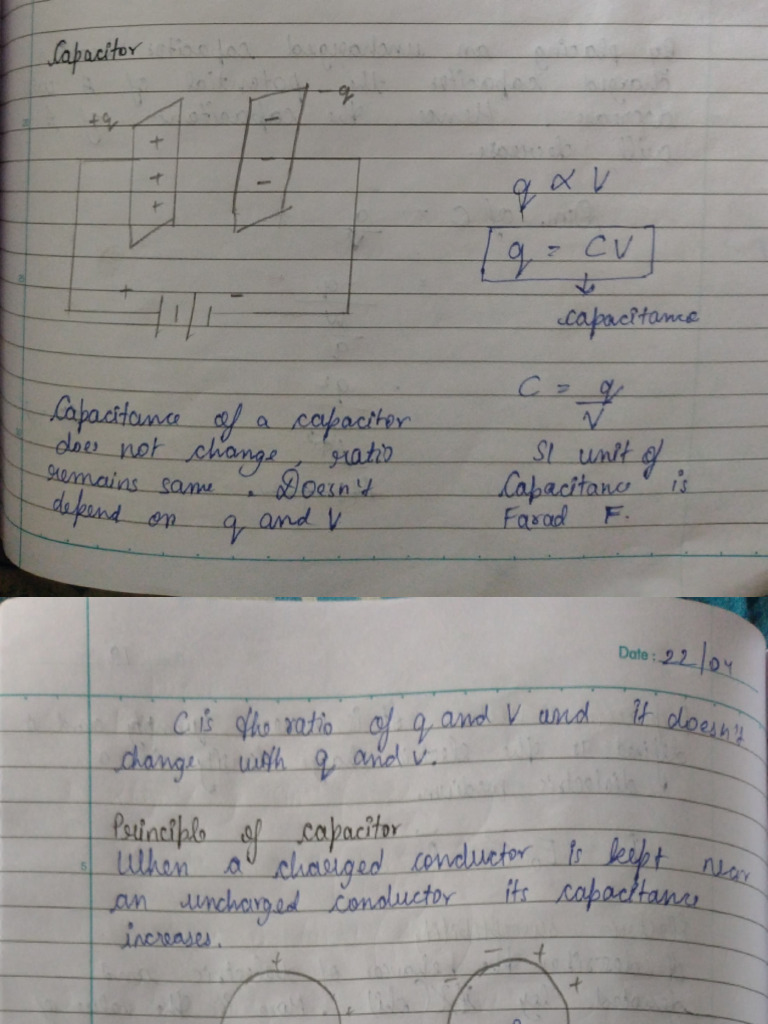 Capacitor
+q
-q
+
+
+
-
-
-
+
-
q ∝ V
q = CV
capacitance
C = q/V
Capacitance of a capacitor
does not change, ratio
remains same. Doesn't
depend on q and V
SI unit of
Capacitance is
Farad F.
Date: 22/04
C is the ratio of q and V and it doesn't
change with q and v.
Principle of capacitor
When a charged conductor is kept near
an uncharged conductor its capacitance
increases.
+
- + +